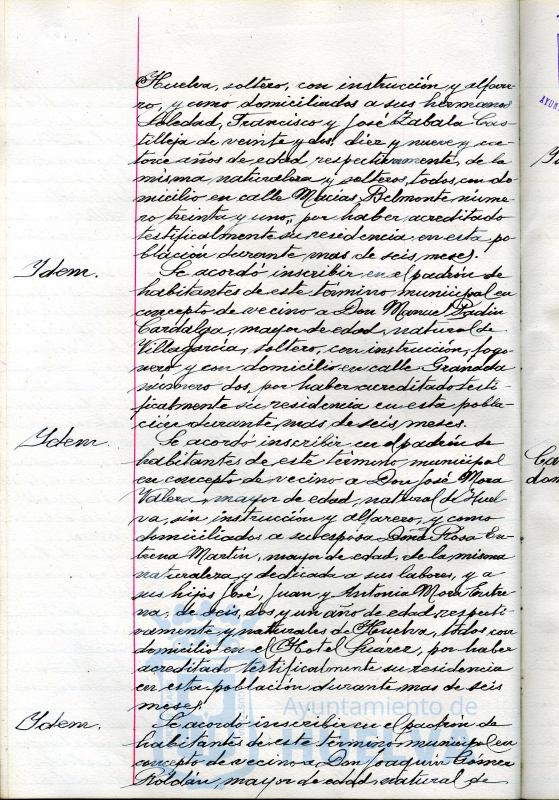 Huelva, soltero, con instrucción y alfare-
ro, y como domiciliados a sus hermanos
Soledad, Francisco y José Zabala Cas-
tilleja de veinte y dos, diez y nueve y ca-
torce años de edad respectivamente, de la
misma naturaleza y solteros, todos con do-
micilio en calle Macías Belmonte núme-
ro treinta y uno, por haber acreditado
testificalmente su residencia en esta po-
blación durante mas de seis meses.
Idem.
Se acordó inscribir en el padrón de
habitantes de este término municipal en
concepto de vecino a Don Manuel Padín
Cardalga, mayor de edad, natural de
Villagarcía, soltero, con instrucción, fogo-
nero y con domicilio en calle Granada
número dos, por haber acreditado testi-
ficalmente su residencia en esta pobla-
ción durante mas de seis meses.
Idem.
Se acordó inscribir en el padrón de
habitantes de este término municipal
en concepto de vecino a Don José Mora
Valera, mayor de edad, natural de Huel-
va, sin instrucción y alfarero, y como
domiciliados a su esposa Doña Rosa En-
trena Martín, mayor de edad, de la misma
naturaleza y dedicada a sus labores, y a
sus hijos José, Juan y Antonia Mora Entre-
na, de seis, dos y un año de edad respecti-
vamente y naturales de Huelva, todos con
domicilio en el Hotel Suarez, por haber
acreditado testificalmente su residencia
en esta población durante mas de seis
meses.
Idem.
Se acordó inscribir en el padrón de
habitantes de este término municipal en
concepto de vecino a Don Joaquín Gómez
Roldán, mayor de edad, natural de
Ayuntamiento de
HUELVA